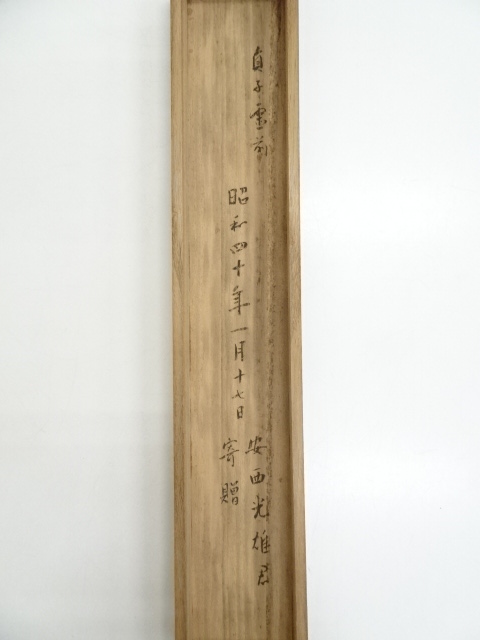 貞子霊前
昭和四十年一月十七日
安西光雄君
寄贈